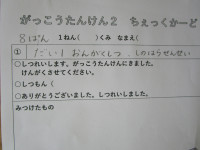 がっこうたんけん2 ちぇっくかーど
8ぱん 1ねん( )くみ なまえ( )
① だい1おんがくしつ しのはらせんせい
○しつれいします。がっこうたんけんにきました。
けんがくさせてください。
○しつもん(
○ありがとうございました。しつれいしました。
みつけたもの